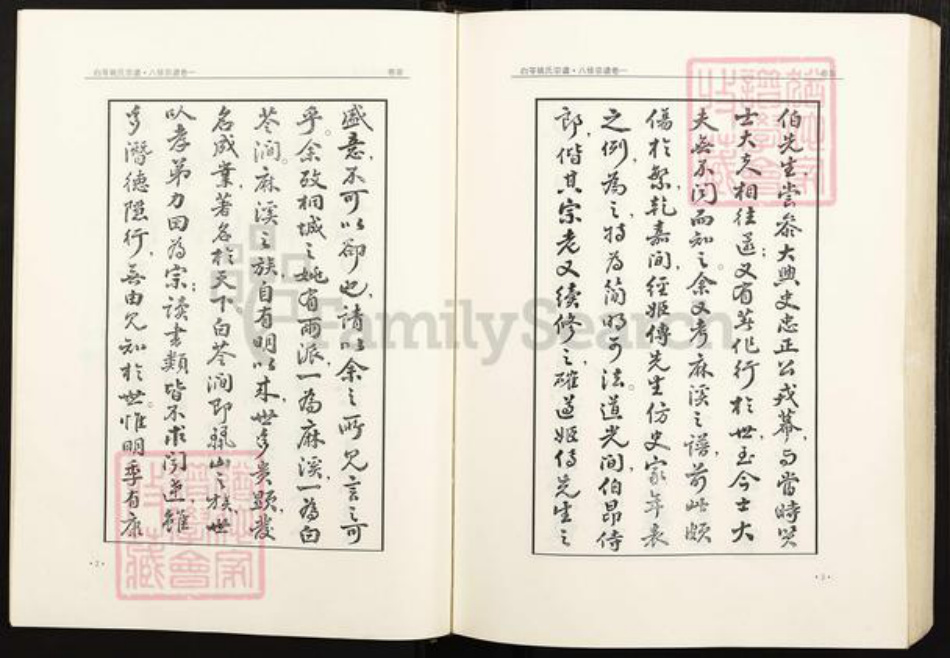 白苓姚氏宗譜·八修宗譜卷一
卷首
盛意不可以卻也請以余之所見言之可
乎余攷桐城之姚有兩派一為麻溪一為白
苓澗麻溪之族自有明以來世多貴顯發
名成業著名於天下白苓澗即龍山之族世
以孝弟力田為宗讀書類皆不求聞達雖
多潛德隱行無由見知於世惟明季有康
·2·
白苓姚氏宗譜·八修宗譜卷一
卷首
伯先生嘗參大興史忠正公戎幕與當時賢
士大夫相往還又有著作行於世至今士大
夫無不聞而知之余又考麻溪之譜前此頗
傷於繁乾嘉間經姬傳先生仿史家年表
之例為之特為簡明可法道光間伯昂侍
郎偕其宗老又續修之確遵姬傳先生之
·3·
FamilySearch